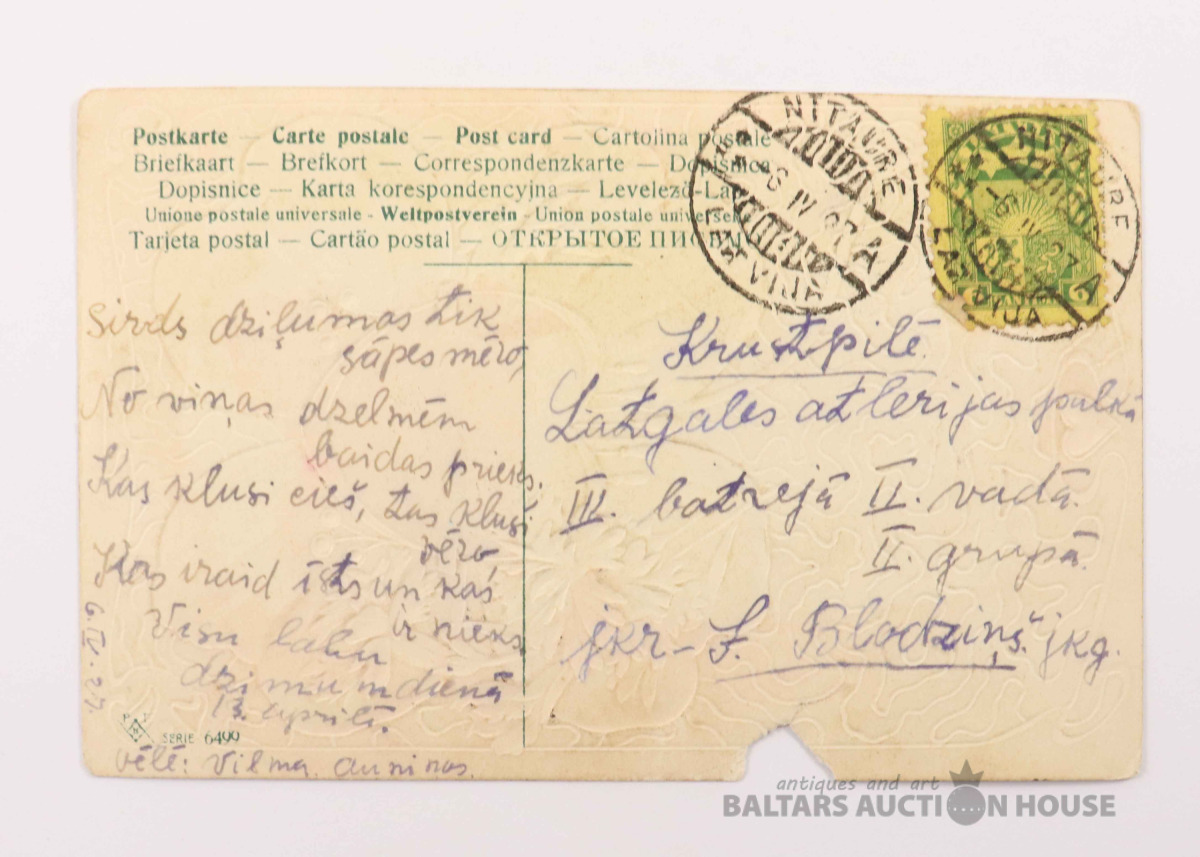 Postkarte — Carte postale — Post card — Cartolina postale
Briefkaart — Brefkort — Correspondenzkarte — Dopisnica
Dopisnice — Karta korespondencyjna — Levelező-Lap
Unione postale universale - Weltpostverein - Union postale universelle
Tarjeta postal — Cartão postal — ОТКРЫТОЕ ПИСЬМО
NĪTAURE
6 IV 27 A
LATVIJA
NĪTAURE
6 IV 27 A
LATVIJA
6
Sirds dziļumos tik
sāpes mēro,
No viņas dzelmēm
baidas prieks.
Kas klusi cieš, tas klusi
vēro,
Kas iraid īsts un kas
ir nieks.
Visu labu
dzimumdienā
13. aprīlī.
6. IV. 27.
SERIE 6400
vēlē: Vilma
Krustpilē
Latgales atlerijas pulkā
III. batrejā II. vadā.
II. grupā.
jkr - J. Blodziņš. jkg.
antiques and art
BALTARS AUCTION HOUSE